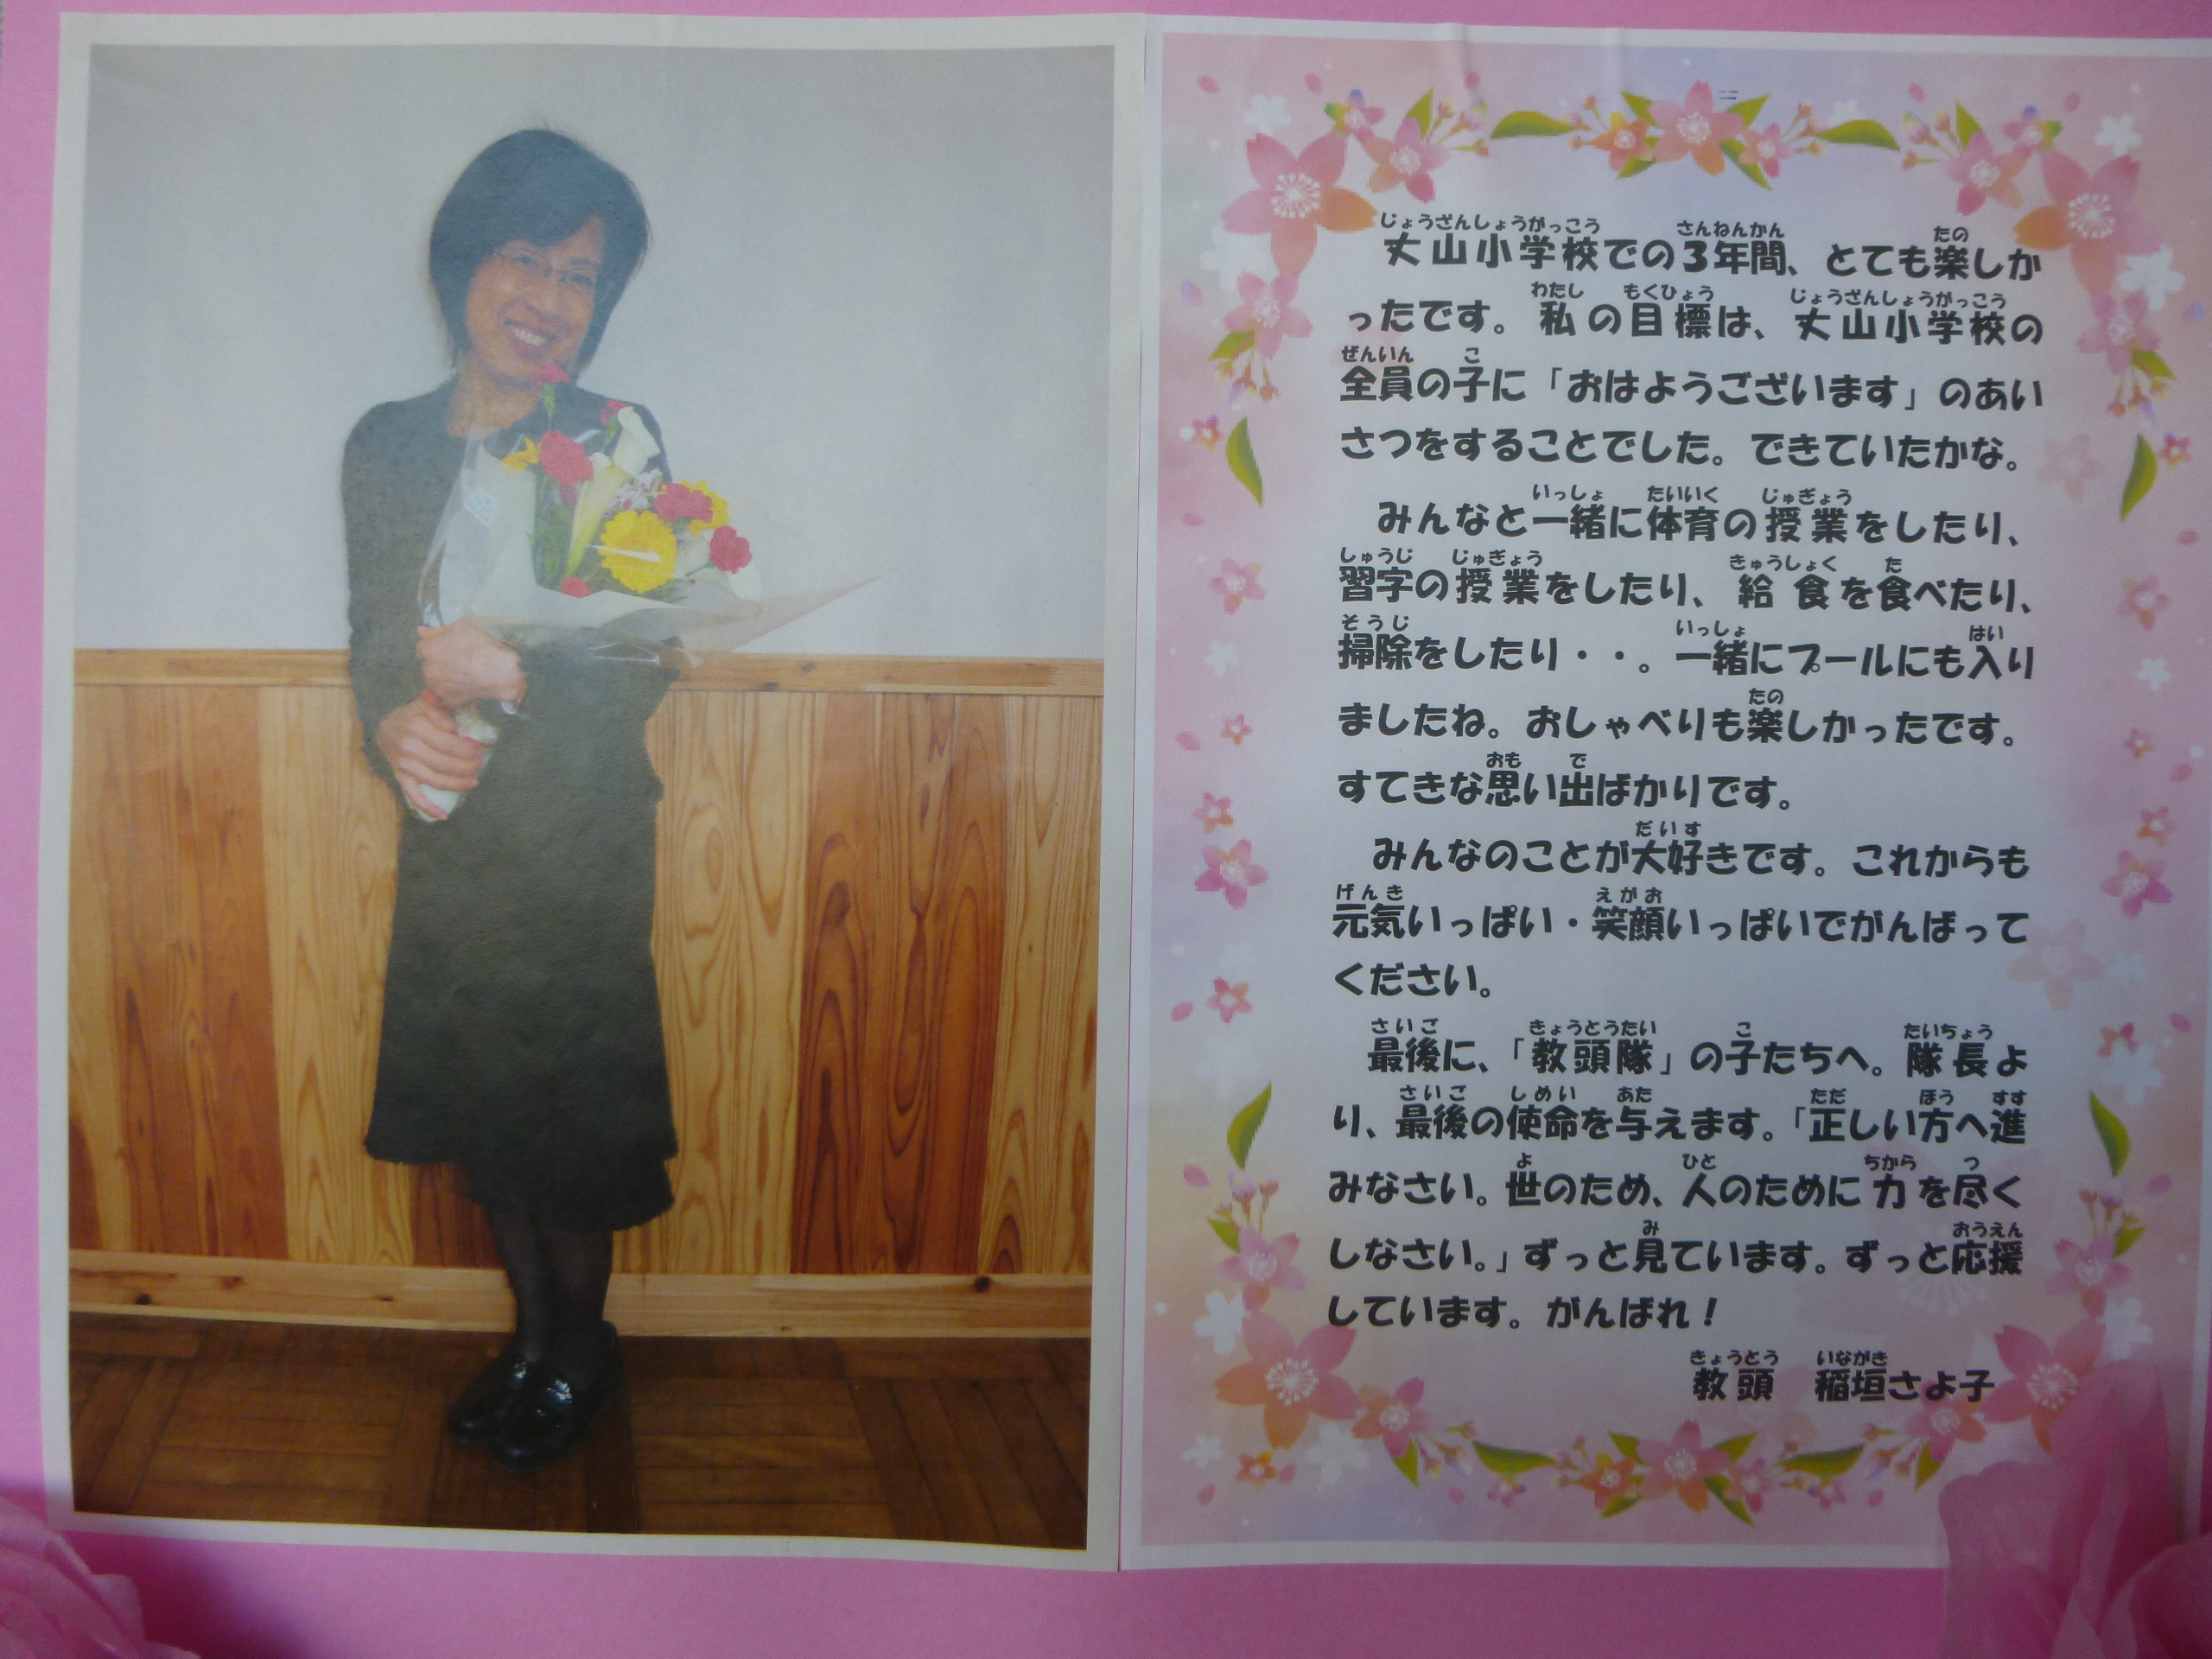 丈山小学校での3年間、とても楽しか
ったです。私の目標は、丈山小学校の
全員の子に「おはようございます」のあい
さつをすることでした。できていたかな。
みんなと一緒に体育の授業をしたり、
習字の授業をしたり、給食を食べたり、
掃除をしたり・・。一緒にプールにも入り
ましたね。おしゃべりも楽しかったです。
すてきな思い出ばかりです。
みんなのことが大好きです。これからも
元気いっぱい・笑顔いっぱいでがんばって
ください。
最後に、「教頭隊」の子たちへ。隊長よ
り、最後の使命を与えます。「正しい方へ進
みなさい。世のため、人のために力を尽く
しなさい。」ずっと見ています。ずっと応援
しています。がんばれ！
教頭　稲垣さよ子